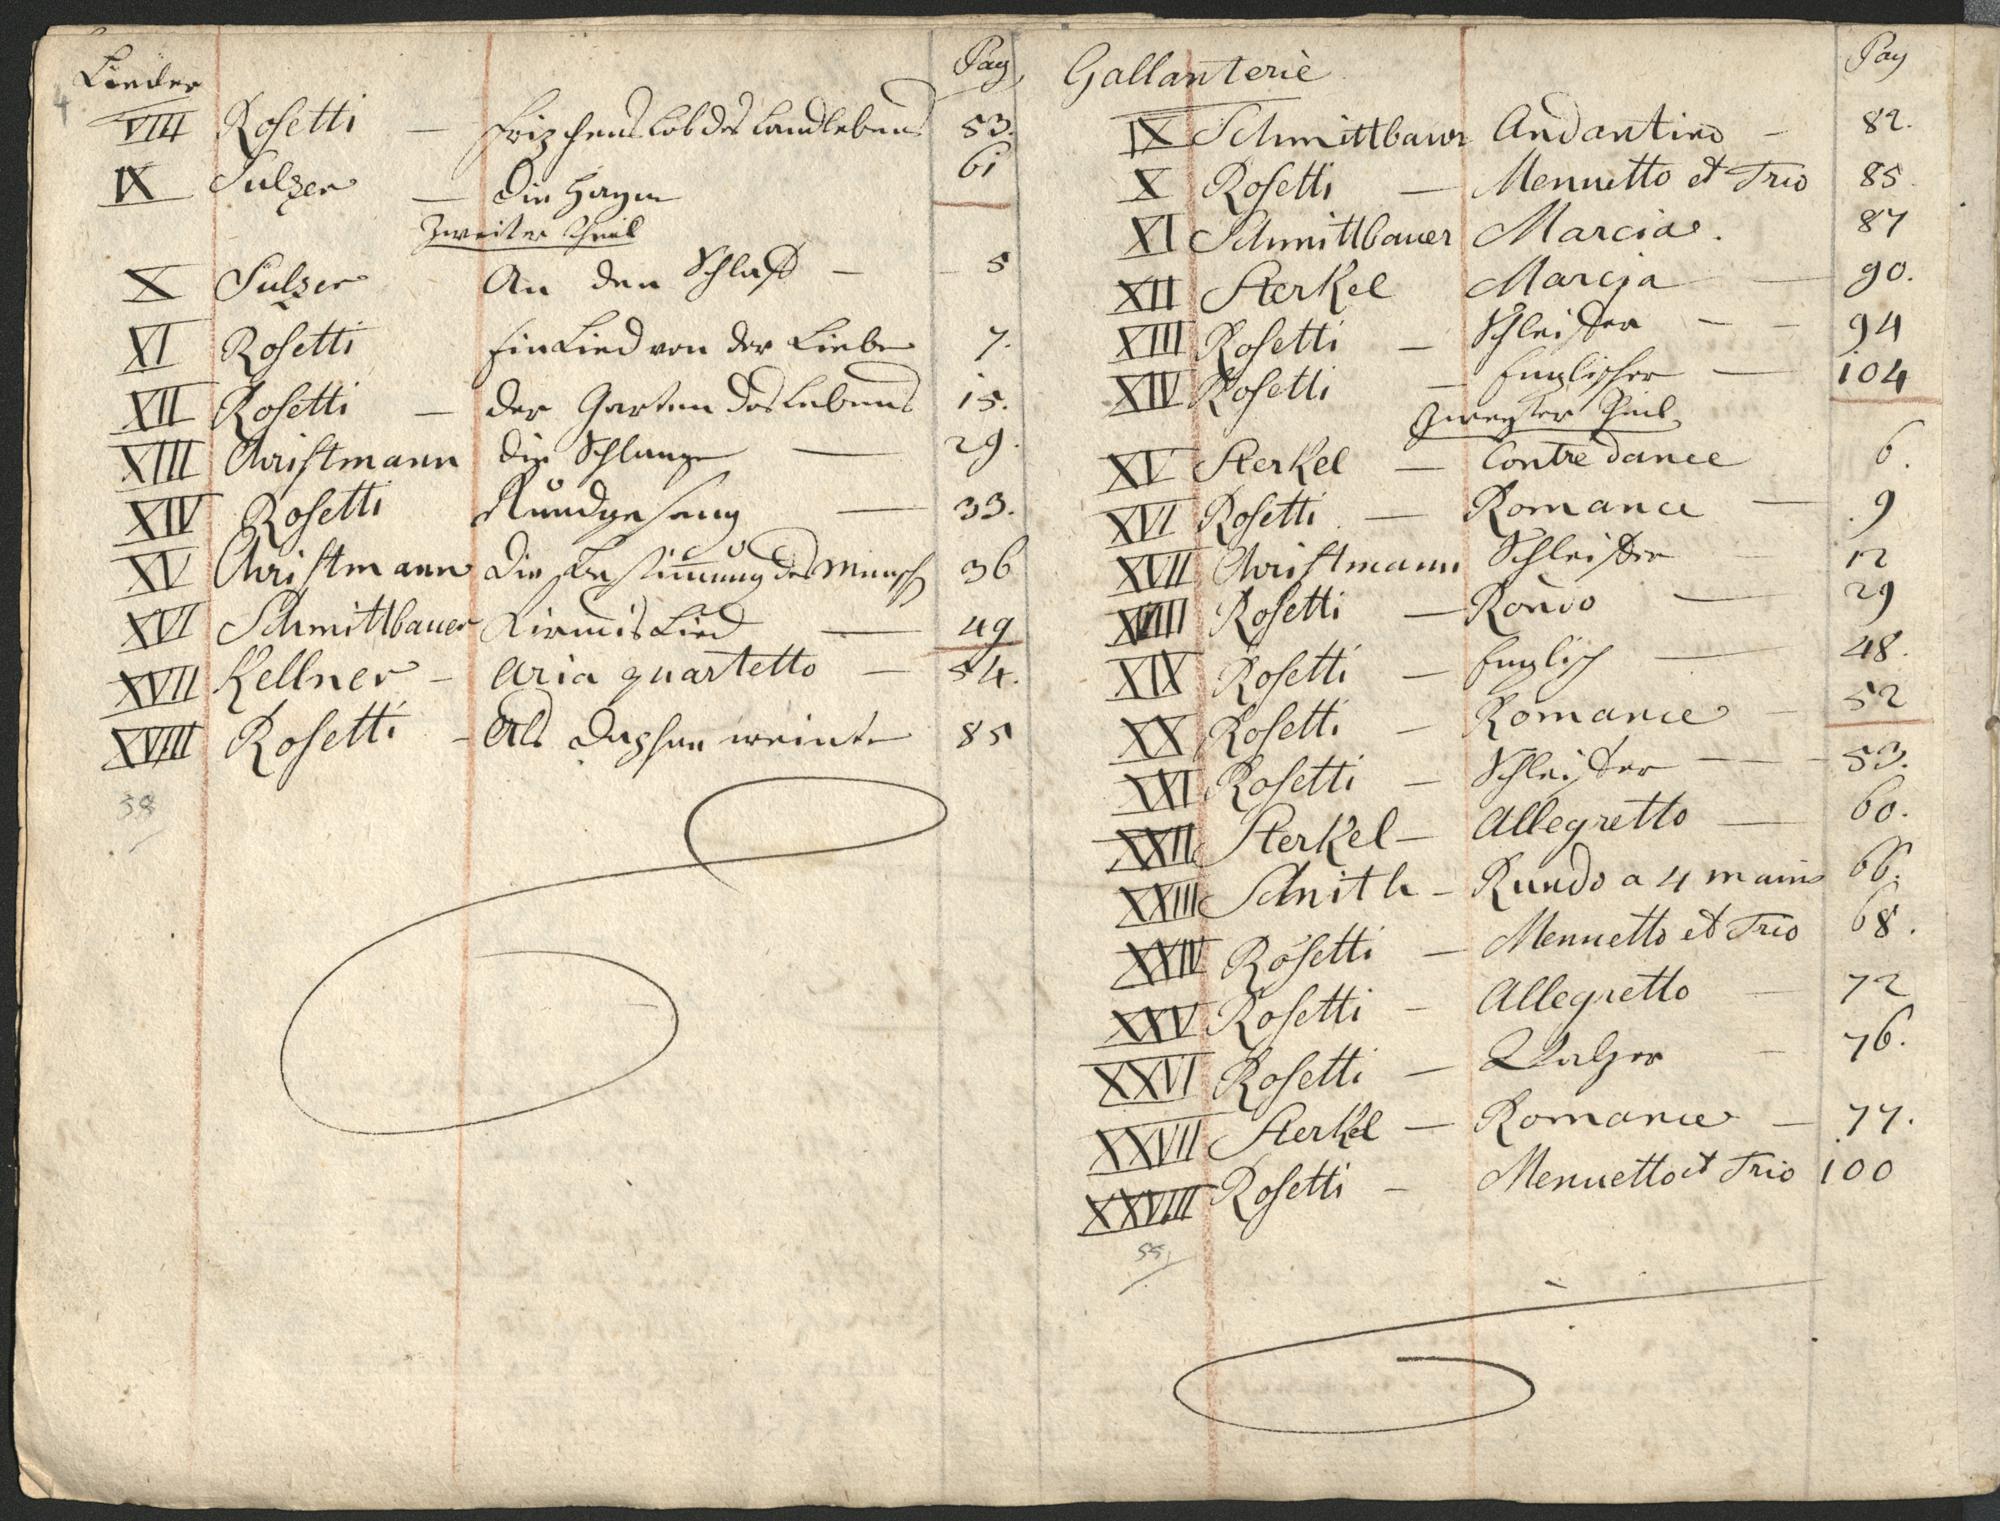 Lieder Pag
4
VIII Rosetti — Frizchens Lob des Landlebens 53.
IX Sulzer — die Hagen 61
Zweiter Theil
X Sulzer An den Schlaf — 5
XI Rosetti Ein Lied von der Liebe 7.
XII Rosetti — der Garten des Lebens 15.
XIII Christmann die Schlange — 29.
XIV Rosetti Rundgesang — 33.
XV Christmann die Bestim̄ung des Mensch 36
XVI Schmittbauer Kirmis Lied — 49
XVII Kellner — Aria quartetto — 54.
XVIII Rosetti — Als Daphne weinte 85
38
Gallanterie Pag
IX Schmittbaur Andantino — 82.
X Rosetti — Menuetto et Trio 85
XI Schmittbauer Marcia. 87
XII Sterkel Marcia — 90.
XIII Rosetti — Schleiffer — — 94
XIV Rosetti — Englischer — 104
Zweyter Theil
XV Sterkel — Contre dance 6.
XVI Rosetti — Romance — 9
XVII Christmann Schleiffer — 12
XVIII Rosetti — Rondo — 29
XIX Rosetti — Englisch — 48.
XX Rosetti — Romance — 52
XXI Rosetti — Schleiffer — — — 53.
XXII Sterkel — Allegretto — 60.
XXIII Schnith — Rundo a 4 mains 66.
XXIV Rosetti — Menuetto et Trio 68.
XXV Rosetti — Allegretto — 72
XXVI Rosetti — Walzer — 76.
XXVII Sterkel — Romance — 77.
XXVIII Rosetti — Menuetto et Trio 100
55